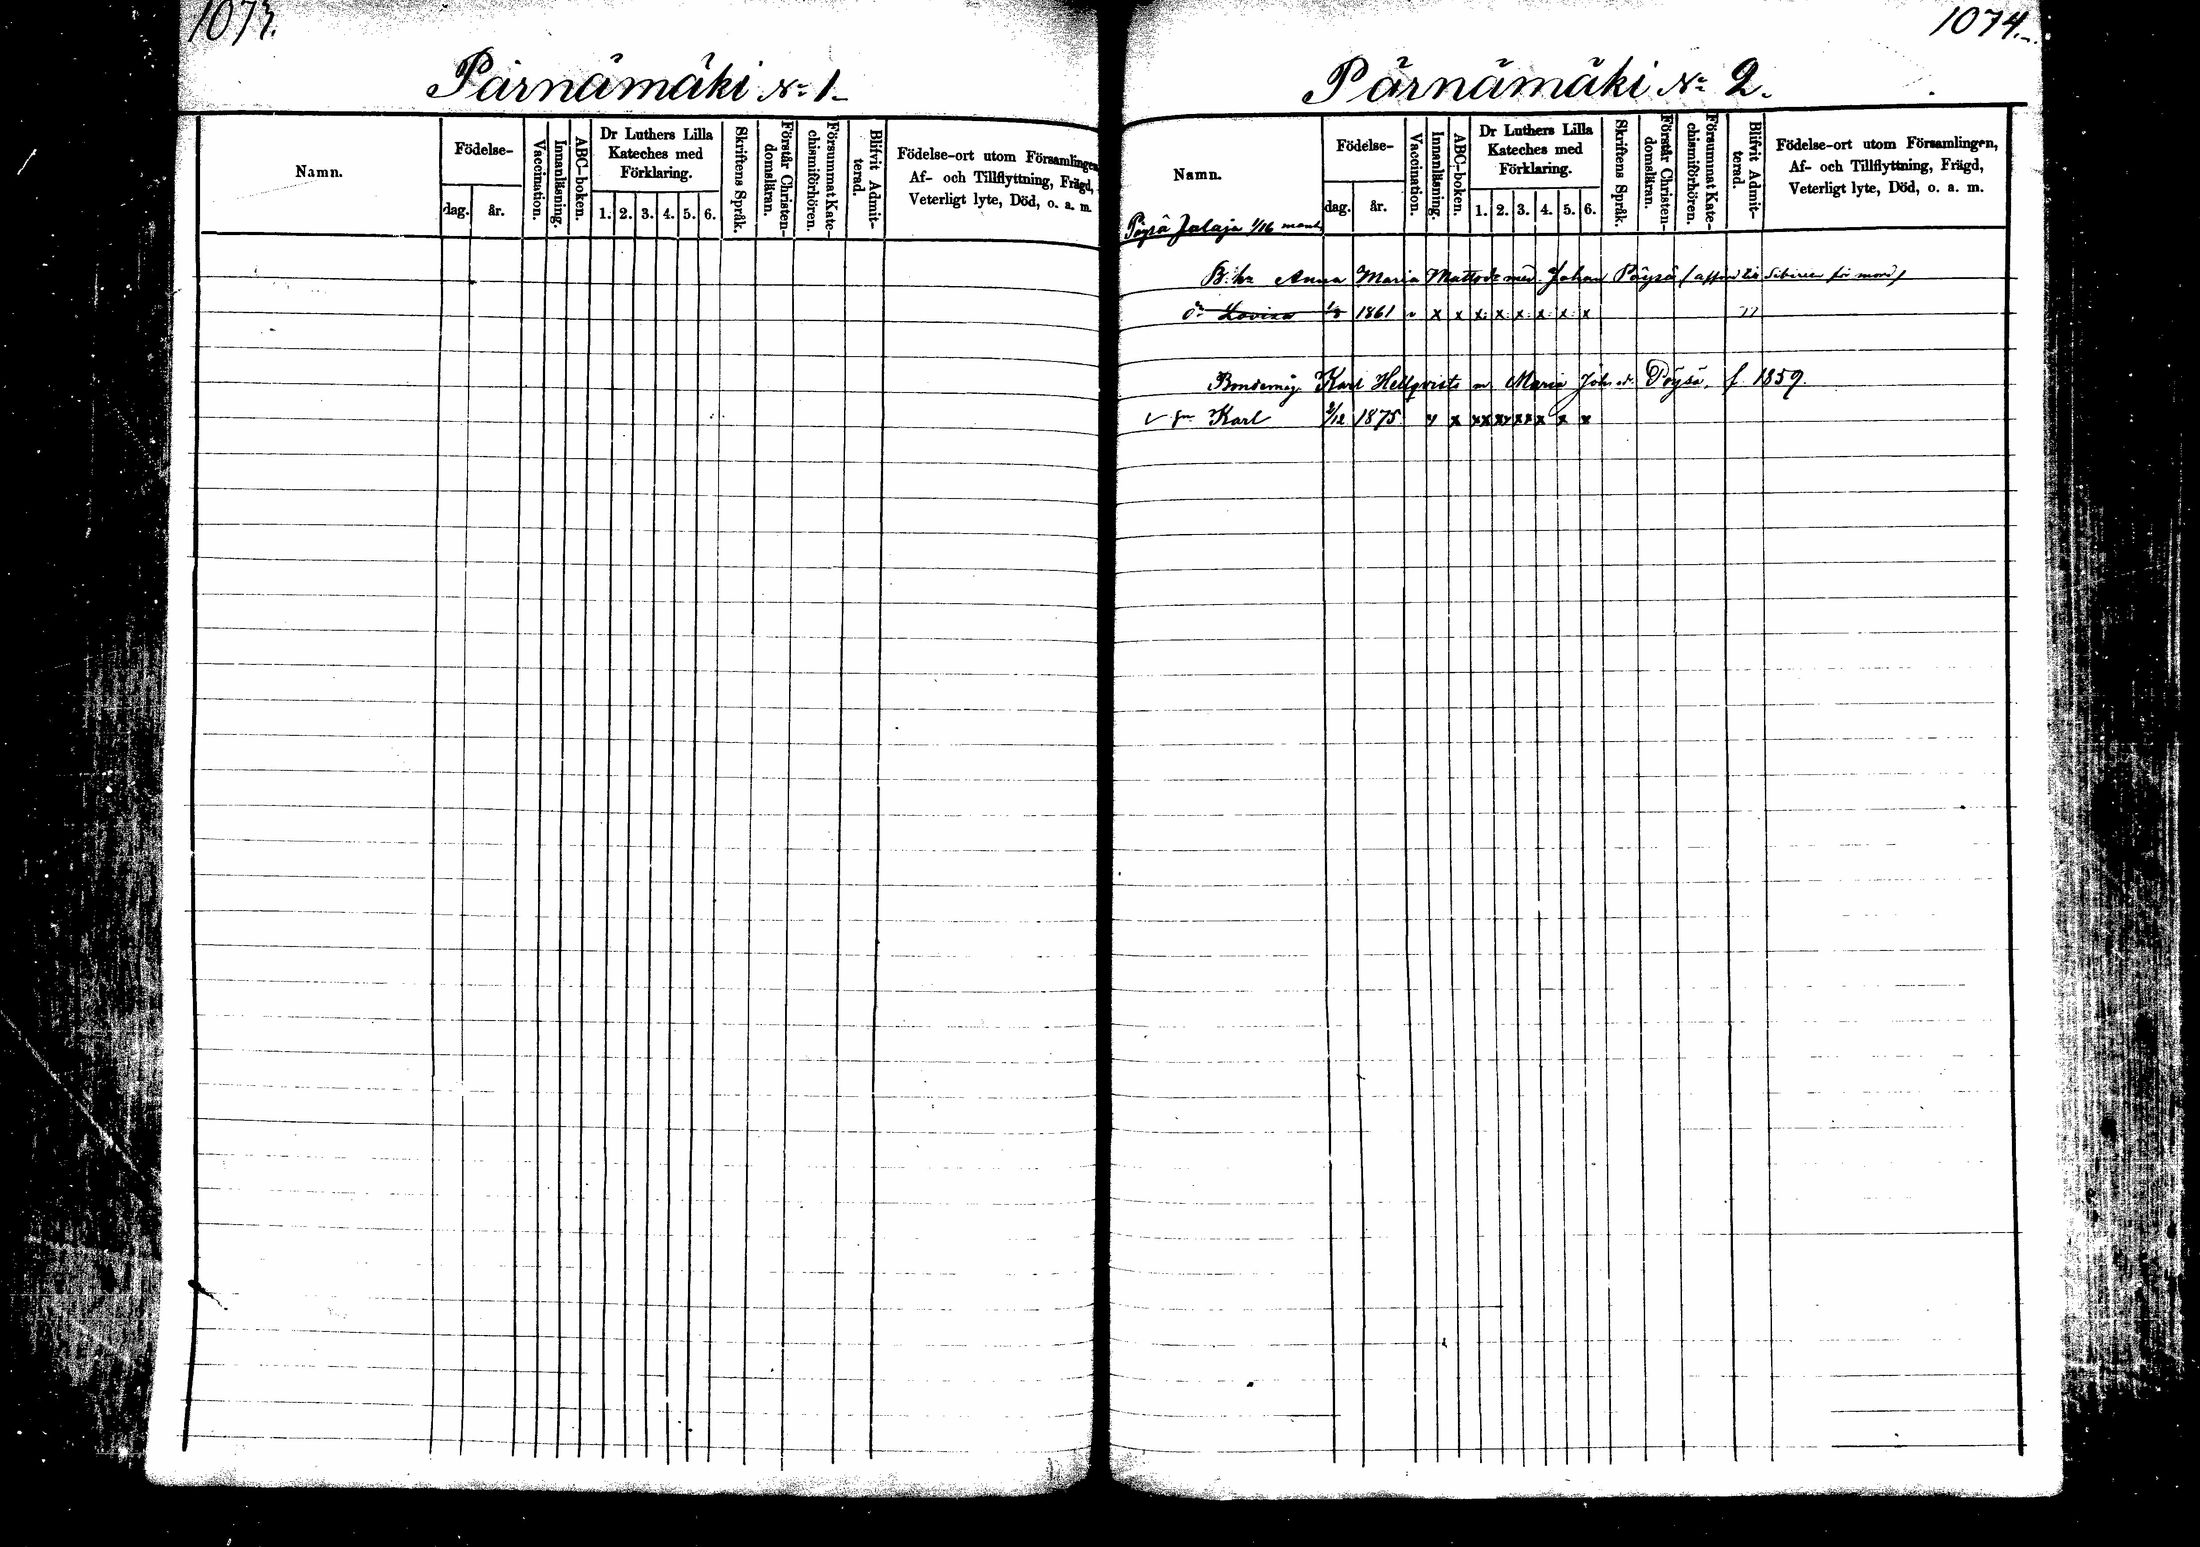 1073.
Pärnämäki No 1.
Namn.
Födelse-
dag.
år.
Vaccination.
Innanläsning.
ABC-boken.
Dr Luthers Lilla
Kateches med
Förklaring.
1. 2. 3. 4. 5. 6.
Skriftens Språk.
Förstår Christen-
domsläran.
Försummat Kate-
chismiförhören.
Blifvit Admit-
terad.
Födelse-ort utom Församlingen,
Af- och Tillflyttning, Frägd,
Veterligt lyte, Död, o. a. m.
1074.
Pärnämäki No 2.
Namn.
Födelse-
dag.
år.
Vaccination.
Innanläsning.
ABC-boken.
Dr Luthers Lilla
Kateches med
Förklaring.
1. 2. 3. 4. 5. 6.
Skriftens Språk.
Förstår Christen-
domsläran.
Försummat Kate-
chismiförhören.
Blifvit Admit-
terad.
Födelse-ort utom Församlingen,
Af- och Tillflyttning, Frägd,
Veterligt lyte, Död, o. a. m.
Pöysä Jalaja 1/16 mantl
Anna Maria Mattsdr med Johan Pöysä / till Sibirien för mord /
dr Lovisa 1861 x x x x x x x x
Karl Hellqvists m Maria Johsdr Pöysä. f. 1859.
Karl 2/12 1875 x x xx xx xx x x x